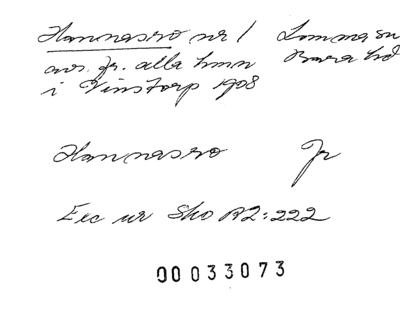 Hannasro nr 1 Lomma sn
avs. fr. alla hmn Bara hd
i Vinstorp 1908
Hannasro Jr
Exc ur Sko R2:222
00033073